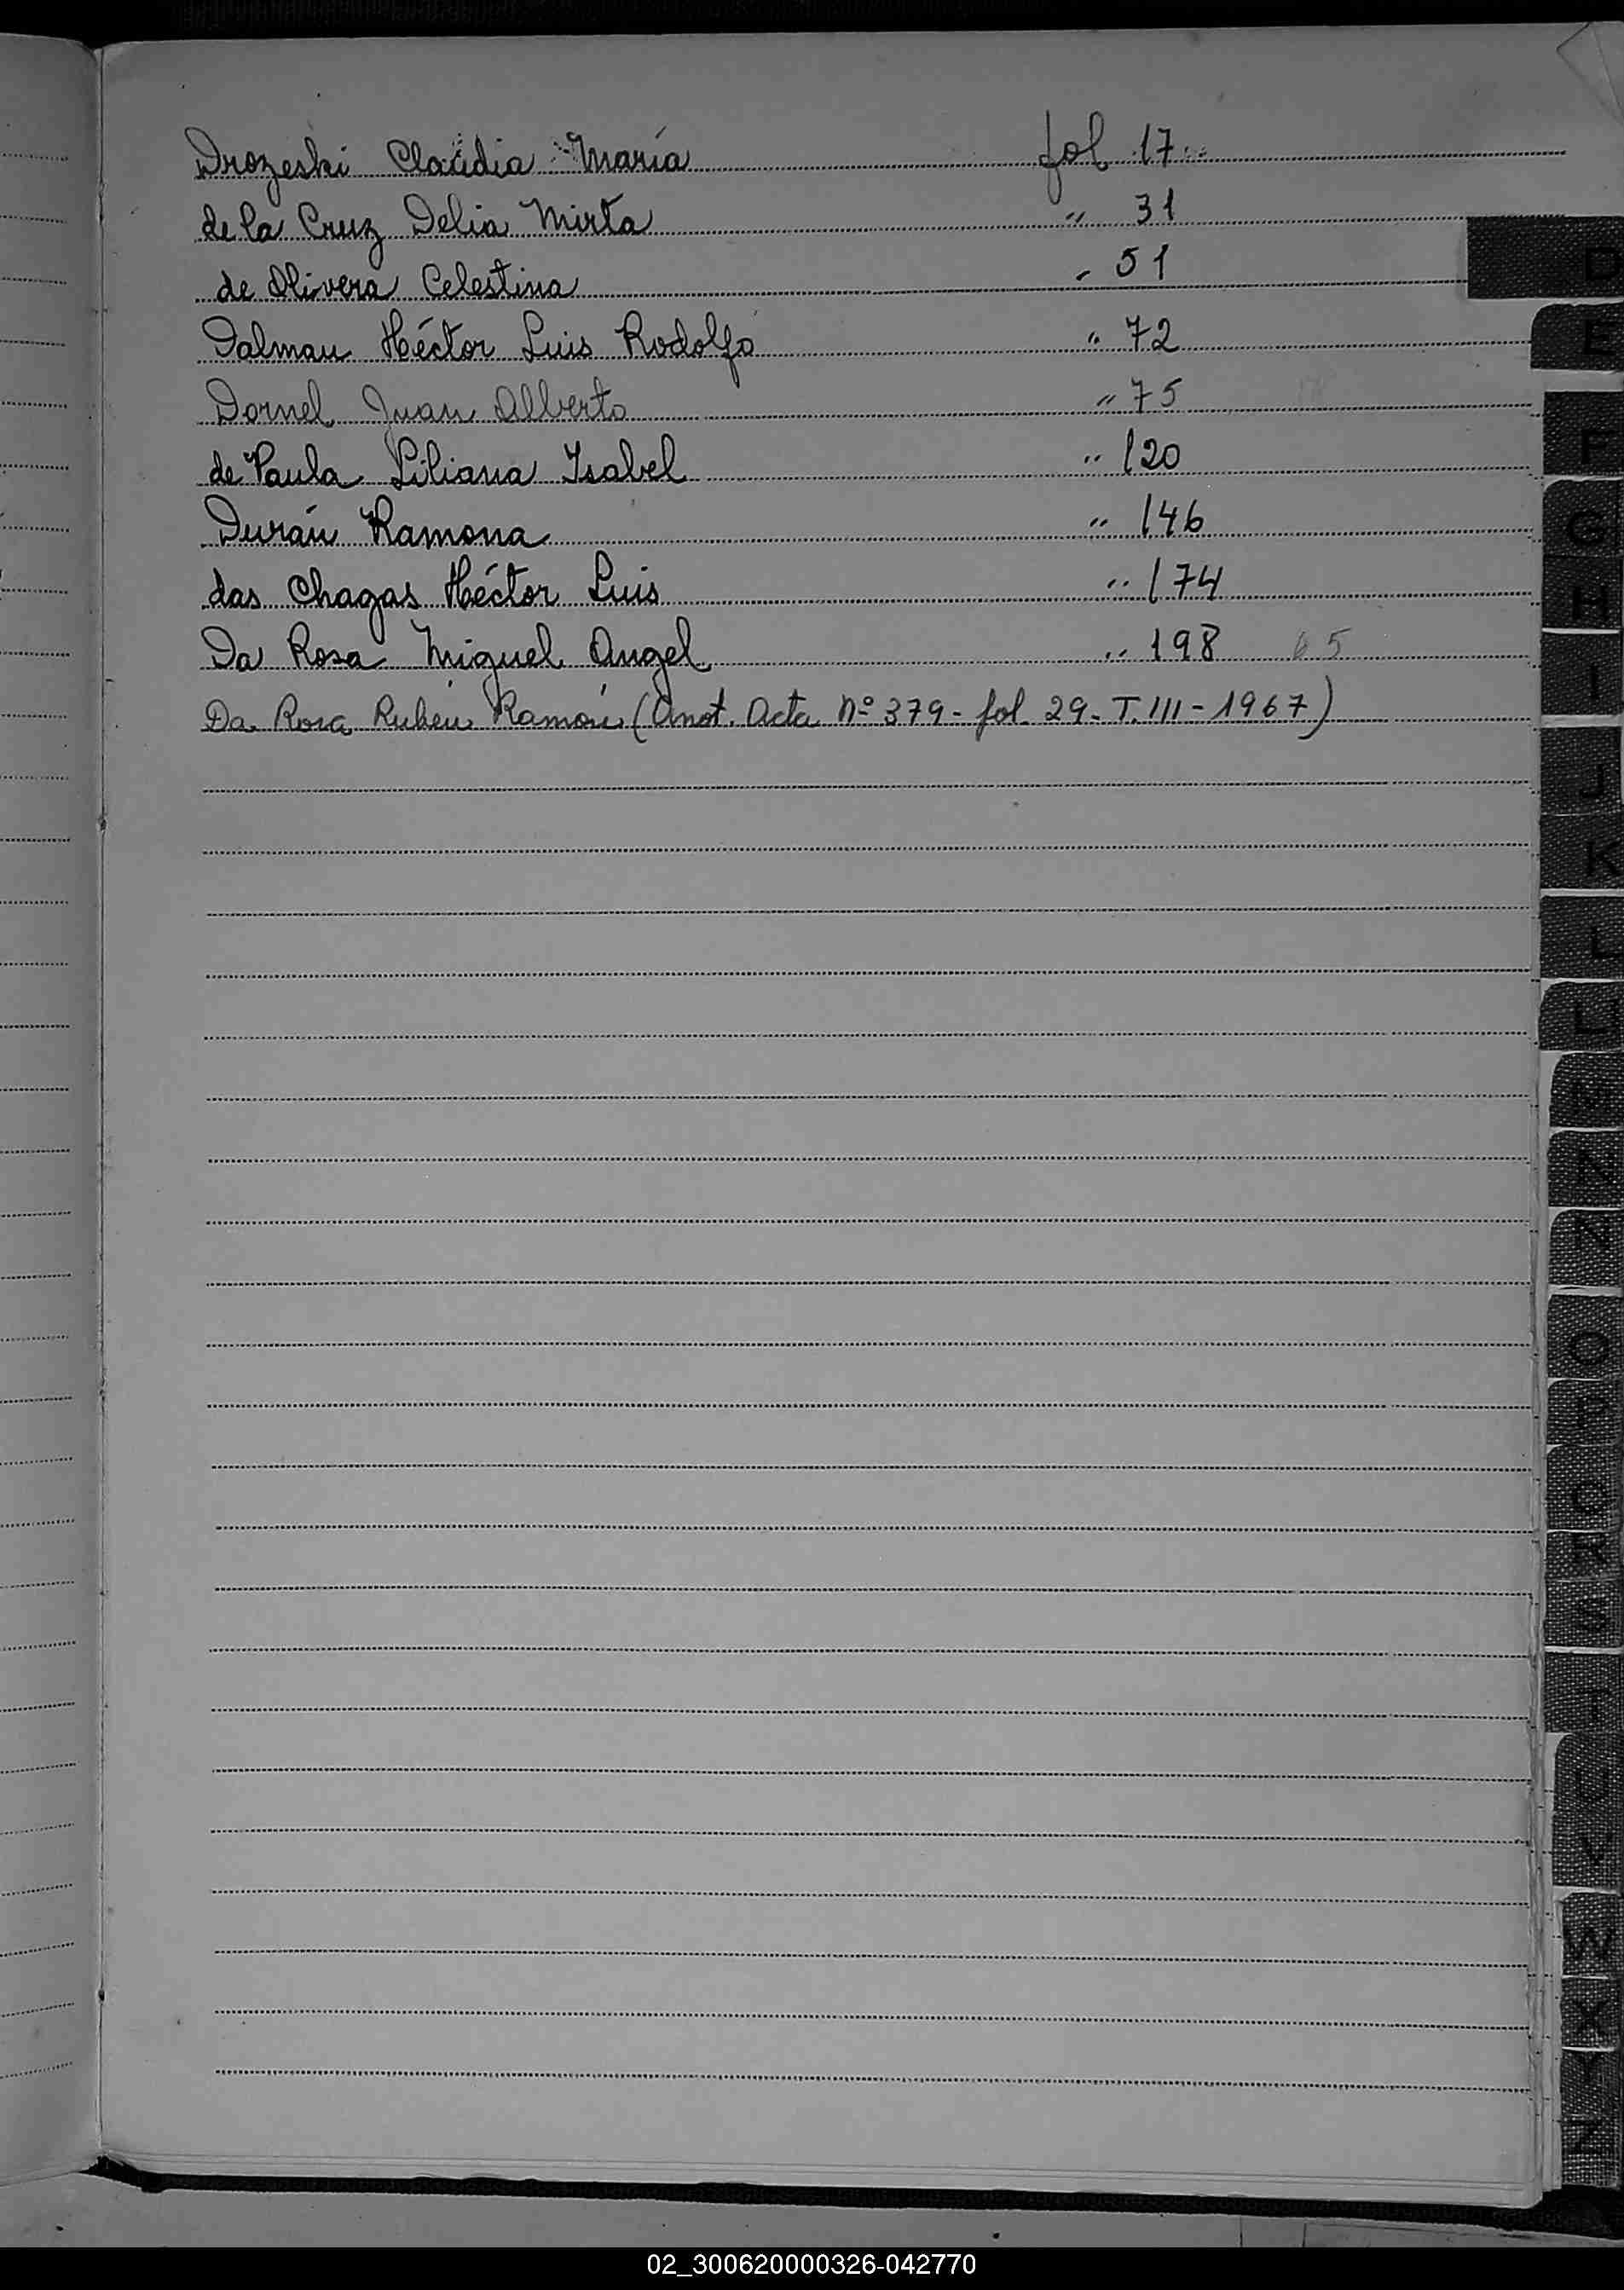 Drozeski Claudia María fol 17
de la Cruz Delia Mirta " 31
de Olivera Celestina " 51
Dalmau Héctor Luis Rodolfo " 72
Dornel Juan Alberto " 75
de Paula Liliana Isabel " 120
Durán Ramona " 146
das Chagas Héctor Luis " 174
Da Rosa Miguel Angel " 198 65
Da Rosa Rubén Ramón (Anot. Acta Nº 379 - fol 29 - T. III - 1967)
D
E
F
G
H
I
J
K
L
L
N
Ñ
O
P
Q
R
S
T
U
V
W
X
Y
Z
02_300620000326-042770